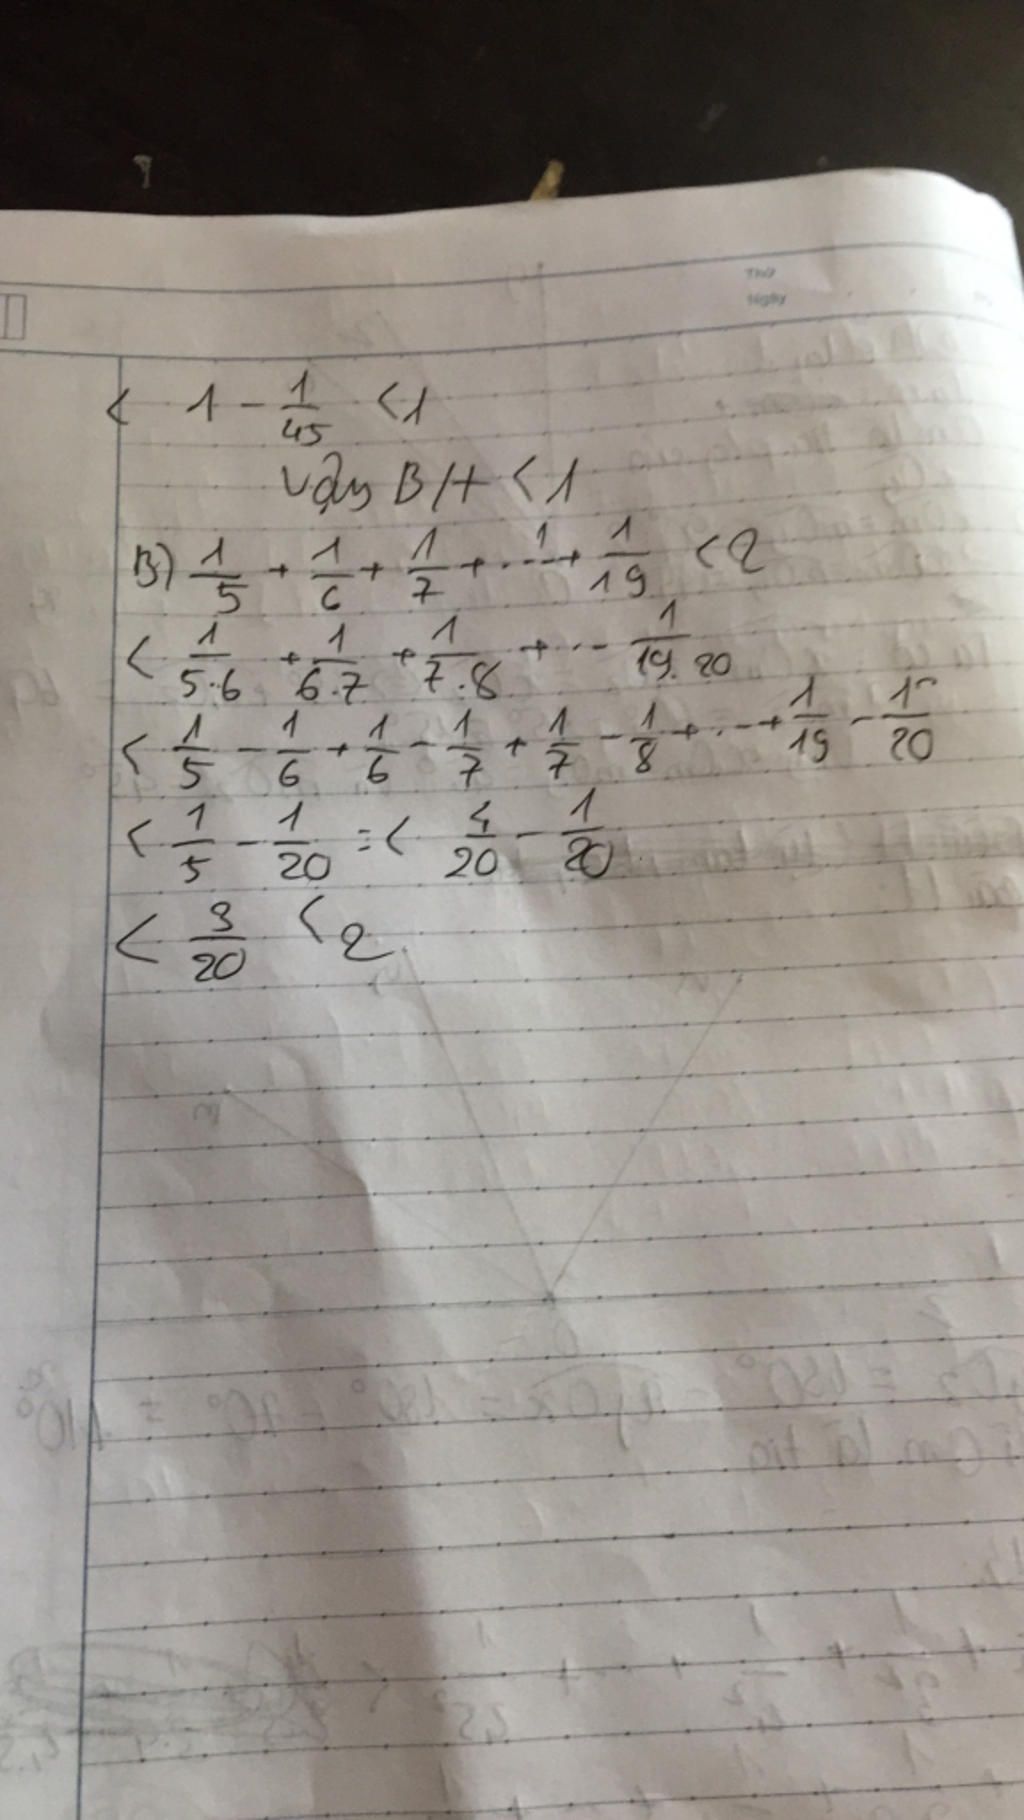 Thứ
Ngày
< 1 - 1/45 < 1
Vậy BH < 1
B) 1/5 + 1/6 + 1/7 + ... + 1/19 < 2
< 1/5.6 + 1/6.7 + 1/7.8 + ... 1/19.20
< 1/5 - 1/6 + 1/6 - 1/7 + 1/7 - 1/8 + ... + 1/19 - 1/20
< 1/5 - 1/20 = < 4/20 - 1/20
< 3/20 < 2